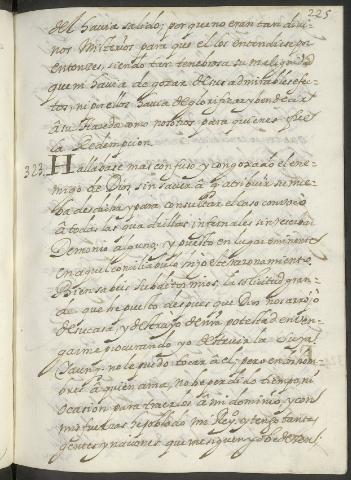 225
del havia sabido; por que no eran tan divi-
nos Misterios para que el los entendiese por
entonzes, siendo tan tenebrosa su malignidad
que ni havia de gozar de sus admirables efe-
tos, ni por ellos havia de glorificar y bendecir
à su Hazedor como nosotros para quienes fue
la Redempcion.
323. Hallabase mas confuso y congojado el ene-
migo de Dios, sin saver à que atribuir su nue-
ba desdicha; y para consultar el caso convocó
à todas las quadrillas infernales sin reservar
Demonio alguno; y puesto en lugar eminente
en aquel conciliabulo hizo este razonamiento.
Bien sabeis subditos mios, la solicitud gran-
de que he puesto despues que Dios nos arrojò
de su casa, y destruyò de nuestra potestad en ven-
garme procurando yo destruir la suya
y aunque no le puedo tocar à el; pero en los hom-
bres à quien ama, no he perdido tiempo ni
ocasion para traerlos à mi dominio, y con
mis fuerzas he poblado mi Reyno, y tengo tantas
gentes y naciones que me siguen y obedecen